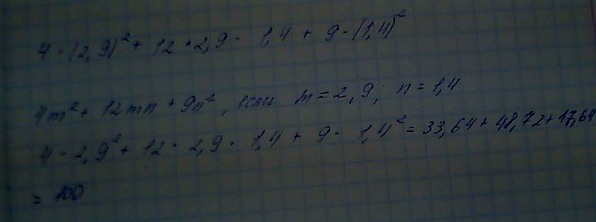 4 · (2,9)² + 12 · 2,9 · 1,4 + 9 · (1,4)²
4m² + 12mn + 9n², если m = 2,9; n = 1,4
4 · 2,9² + 12 · 2,9 · 1,4 + 9 · 1,4² = 33,64 + 48,72 + 17,64
= 100